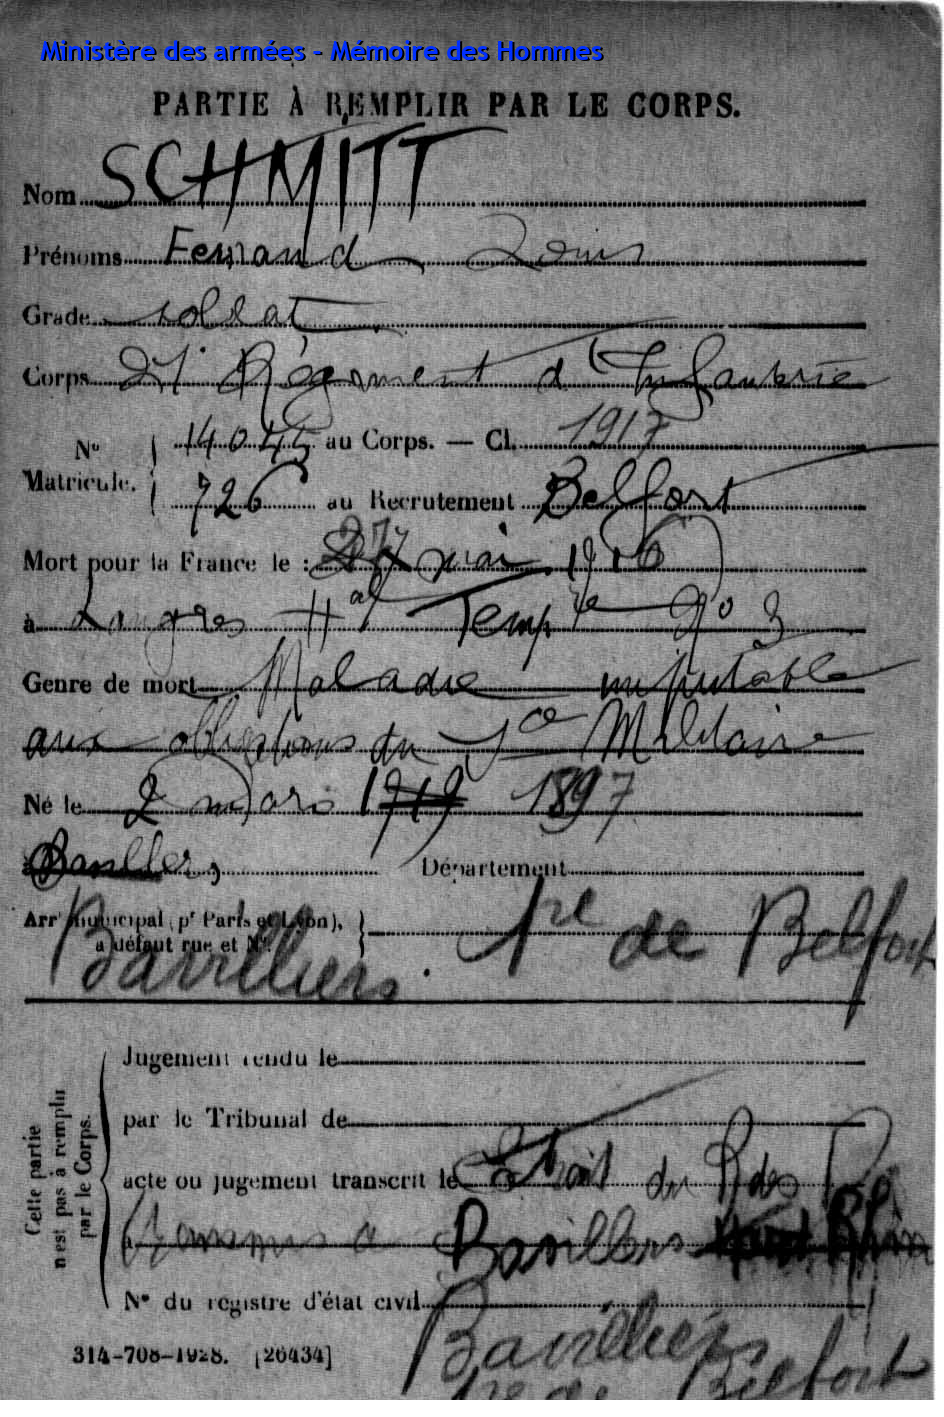 Ministère des armées - Mémoire des Hommes
PARTIE À REMPLIR PAR LE CORPS.
Nom SCHMITT
Prénoms Fernand Louis
Grade soldat
Corps 21e Régiment d'Infanterie
No Matricule. 14045 au Corps. — Cl. 1917
726 au Recrutement Belfort
Mort pour la France le : 27 mai 1916
à Langres Hal Tempre No 3
Genre de mort Maladie imputable
aux obligations du Sce Militaire
Né le 2 mars 1919 1897
Bavillers, Département
Arrt municipal (pr Paris et Lyon), à défaut rue et No.
Bavilliers. Tre de Belfort
Cette partie n'est pas à remplir par le Corps.
Jugement rendu le
par le Tribunal de
acte ou jugement transcrit le
à Bavillers Haut Rhin
No du registre d'état civil
Bavilliers
Tre de Belfort
314-708-1928. [26434]